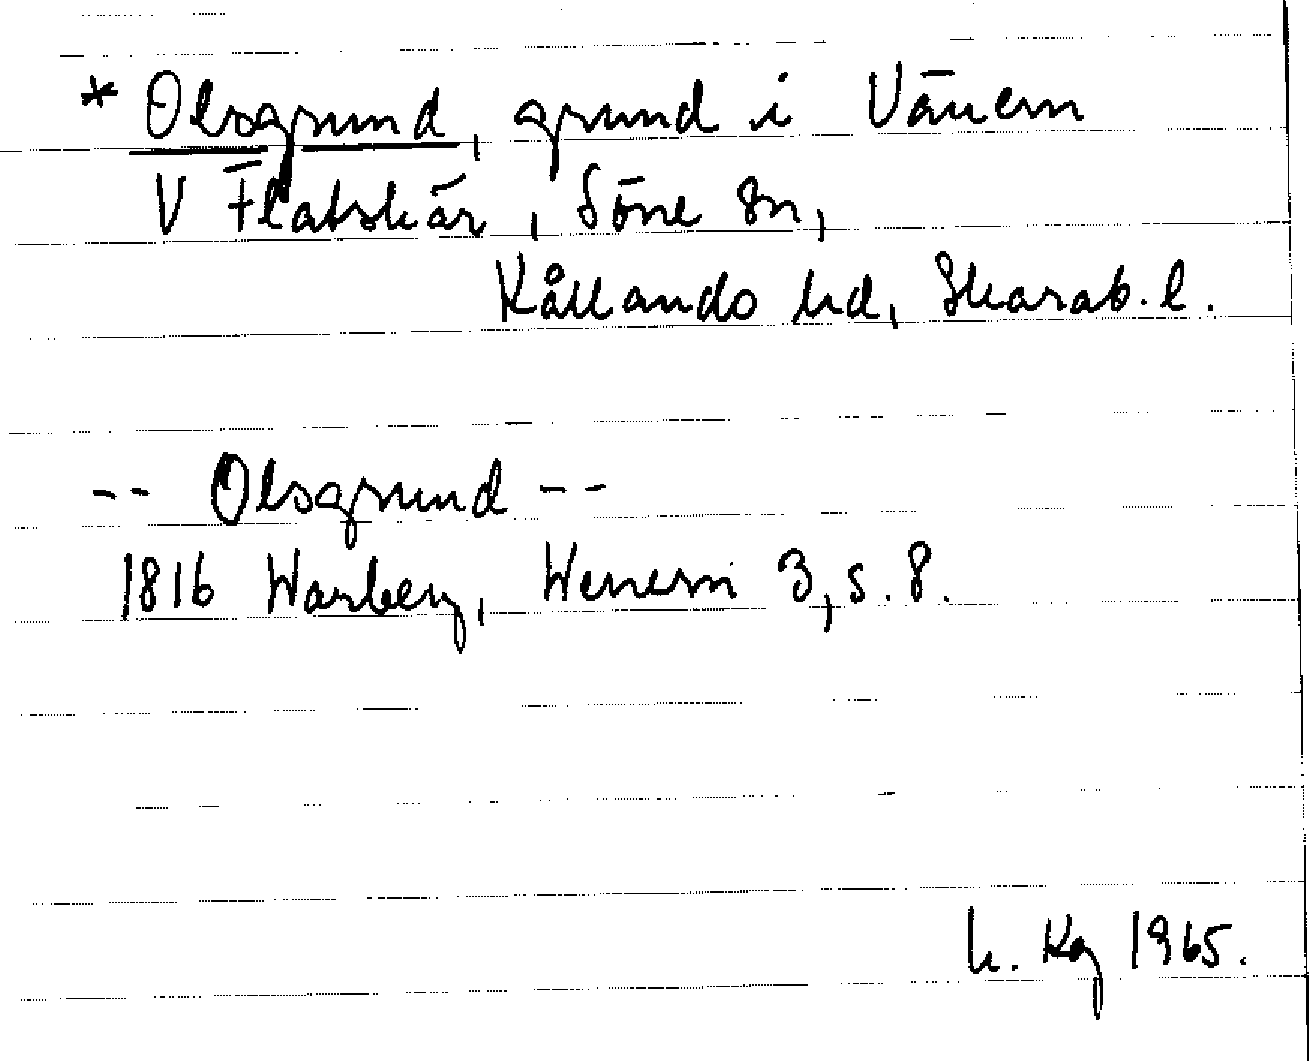 * Olsgrund, grund i Vänern
V Flatskär, Söne sn,
Kållands hd, Skarab. l.
-- Olsgrund --
1816 Warberg, Wenern 3, s. 8.
h. Kg 1965.